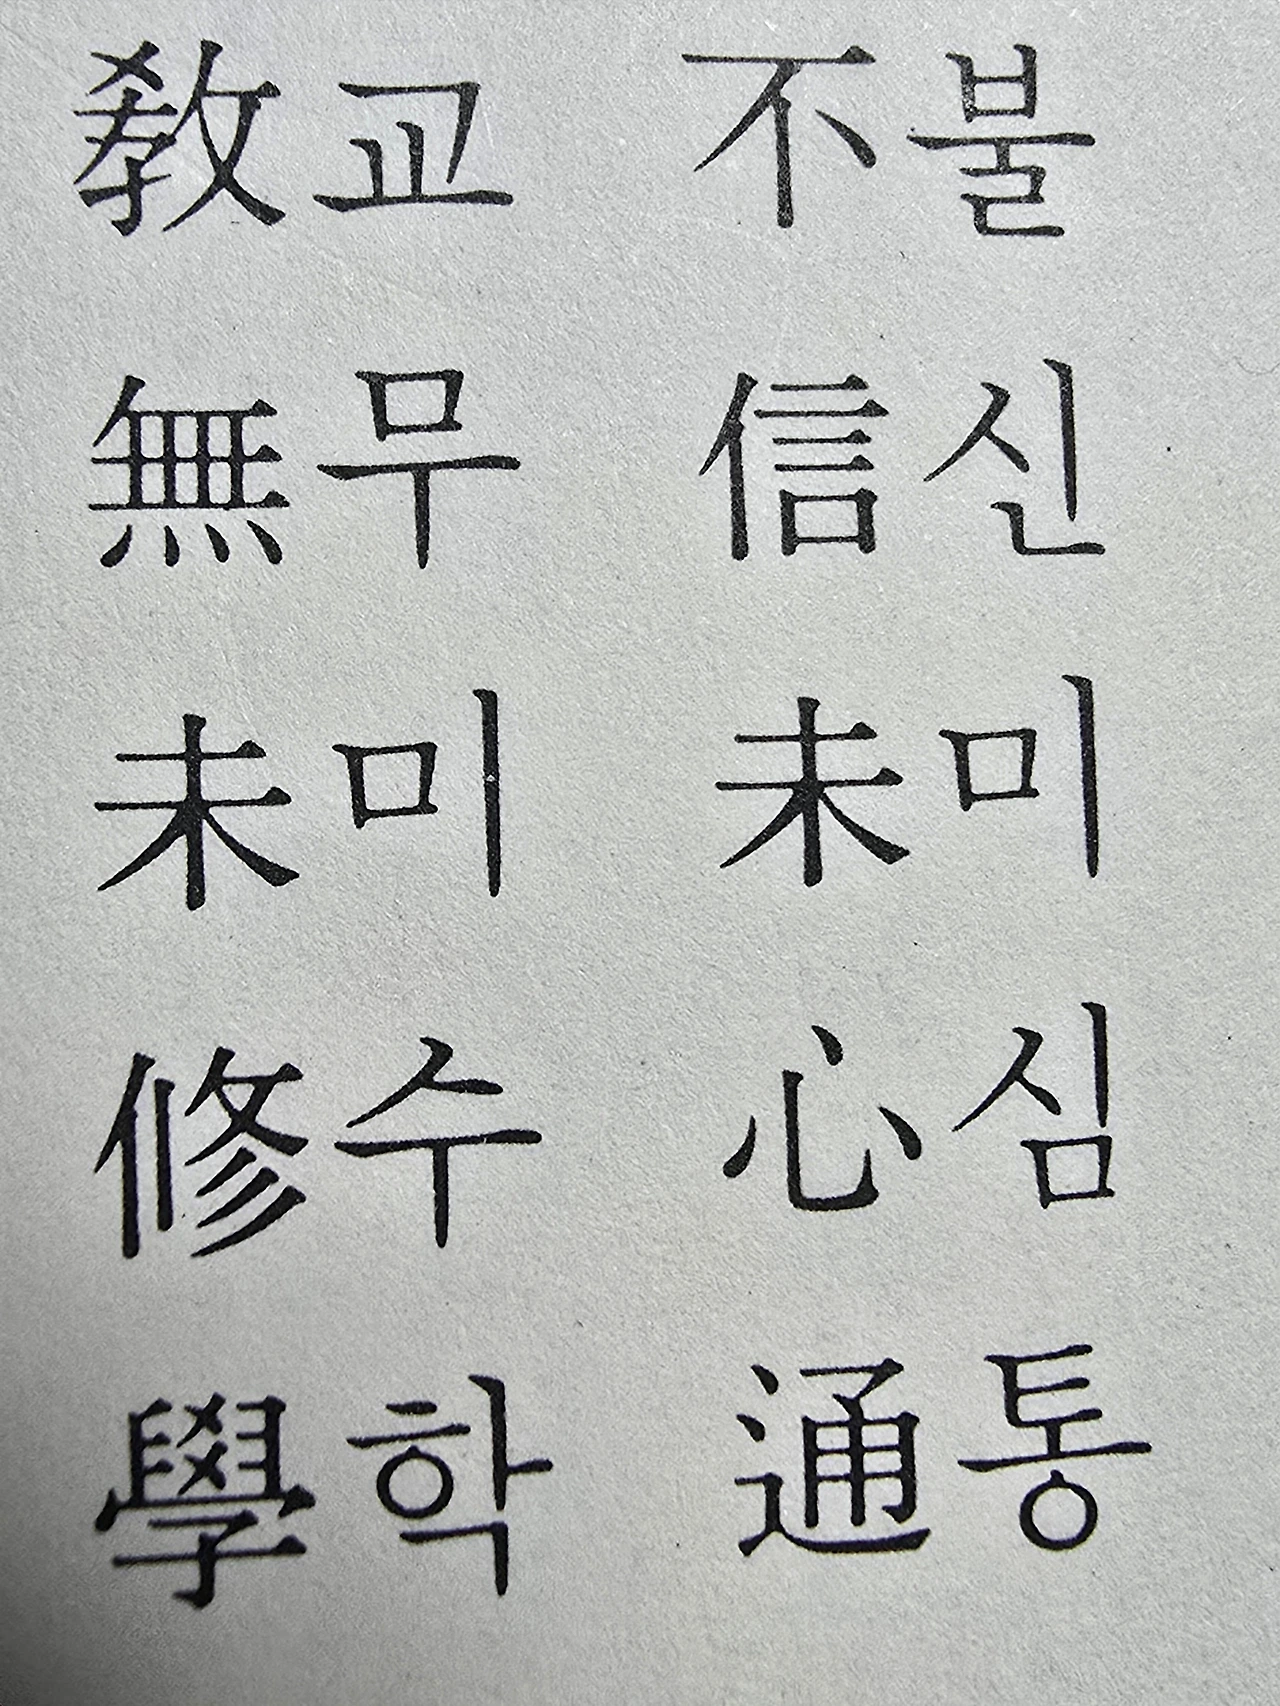 敎교 不불
無무 信신
未미 未미
修수 心심
學학 通통